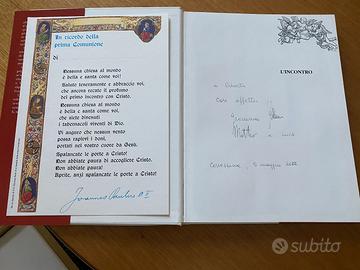 In ricordo della
prima Comunione
di
Nessuna chiesa al mondo
è bella e santa come voi!
Saluto teneramente e abbraccio voi,
che ancora recate il profumo
del primo incontro con Cristo.
Nessuna chiesa al mondo
è bella e santa come voi,
che siete divenuti
i tabernacoli viventi di Dio.
Vi auguro che nessun vento
possa rapirvi i doni,
portati nel vostro cuore da Gesù.
Spalancate le porte a Cristo!
Non abbiate paura di accogliere Cristo.
Non abbiate paura!
Aprite, anzi spalancate le porte a Cristo!
Joannes Paulus II
L'INCONTRO
a
con affetto
maggio
subito